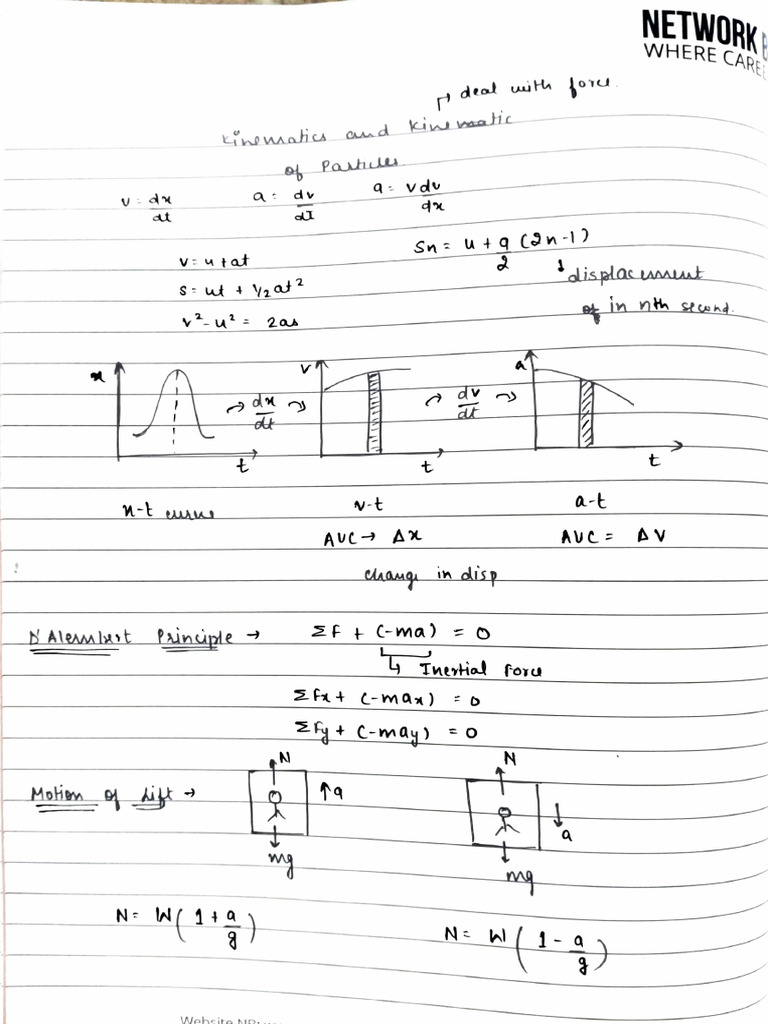 NETWORK
WHERE CAREE
↱ deal with force.
Kinematics and Kinematic
of Particles.
v = dx/dt a = dv/dI a = vdv/dx
v = u + at
Sn = u + a/2 (2n-1)
s = ut + 1/2 at²
↓ displacement
v² - u² = 2as
of in nth second.
x t → dx/dt → v t → dv/dt → a t
x-t curve v-t a-t
AUC → Δx AUC = ΔV
change in disp
D'Alembert Principle → ΣF + (-ma) = 0
↳ Inertial Force
ΣFx + (-max) = 0
ΣFy + (-may) = 0
Motion of Lift → N ↑a mg N ↓ a mg
N = W(1 + a/g) N = W(1 - a/g)